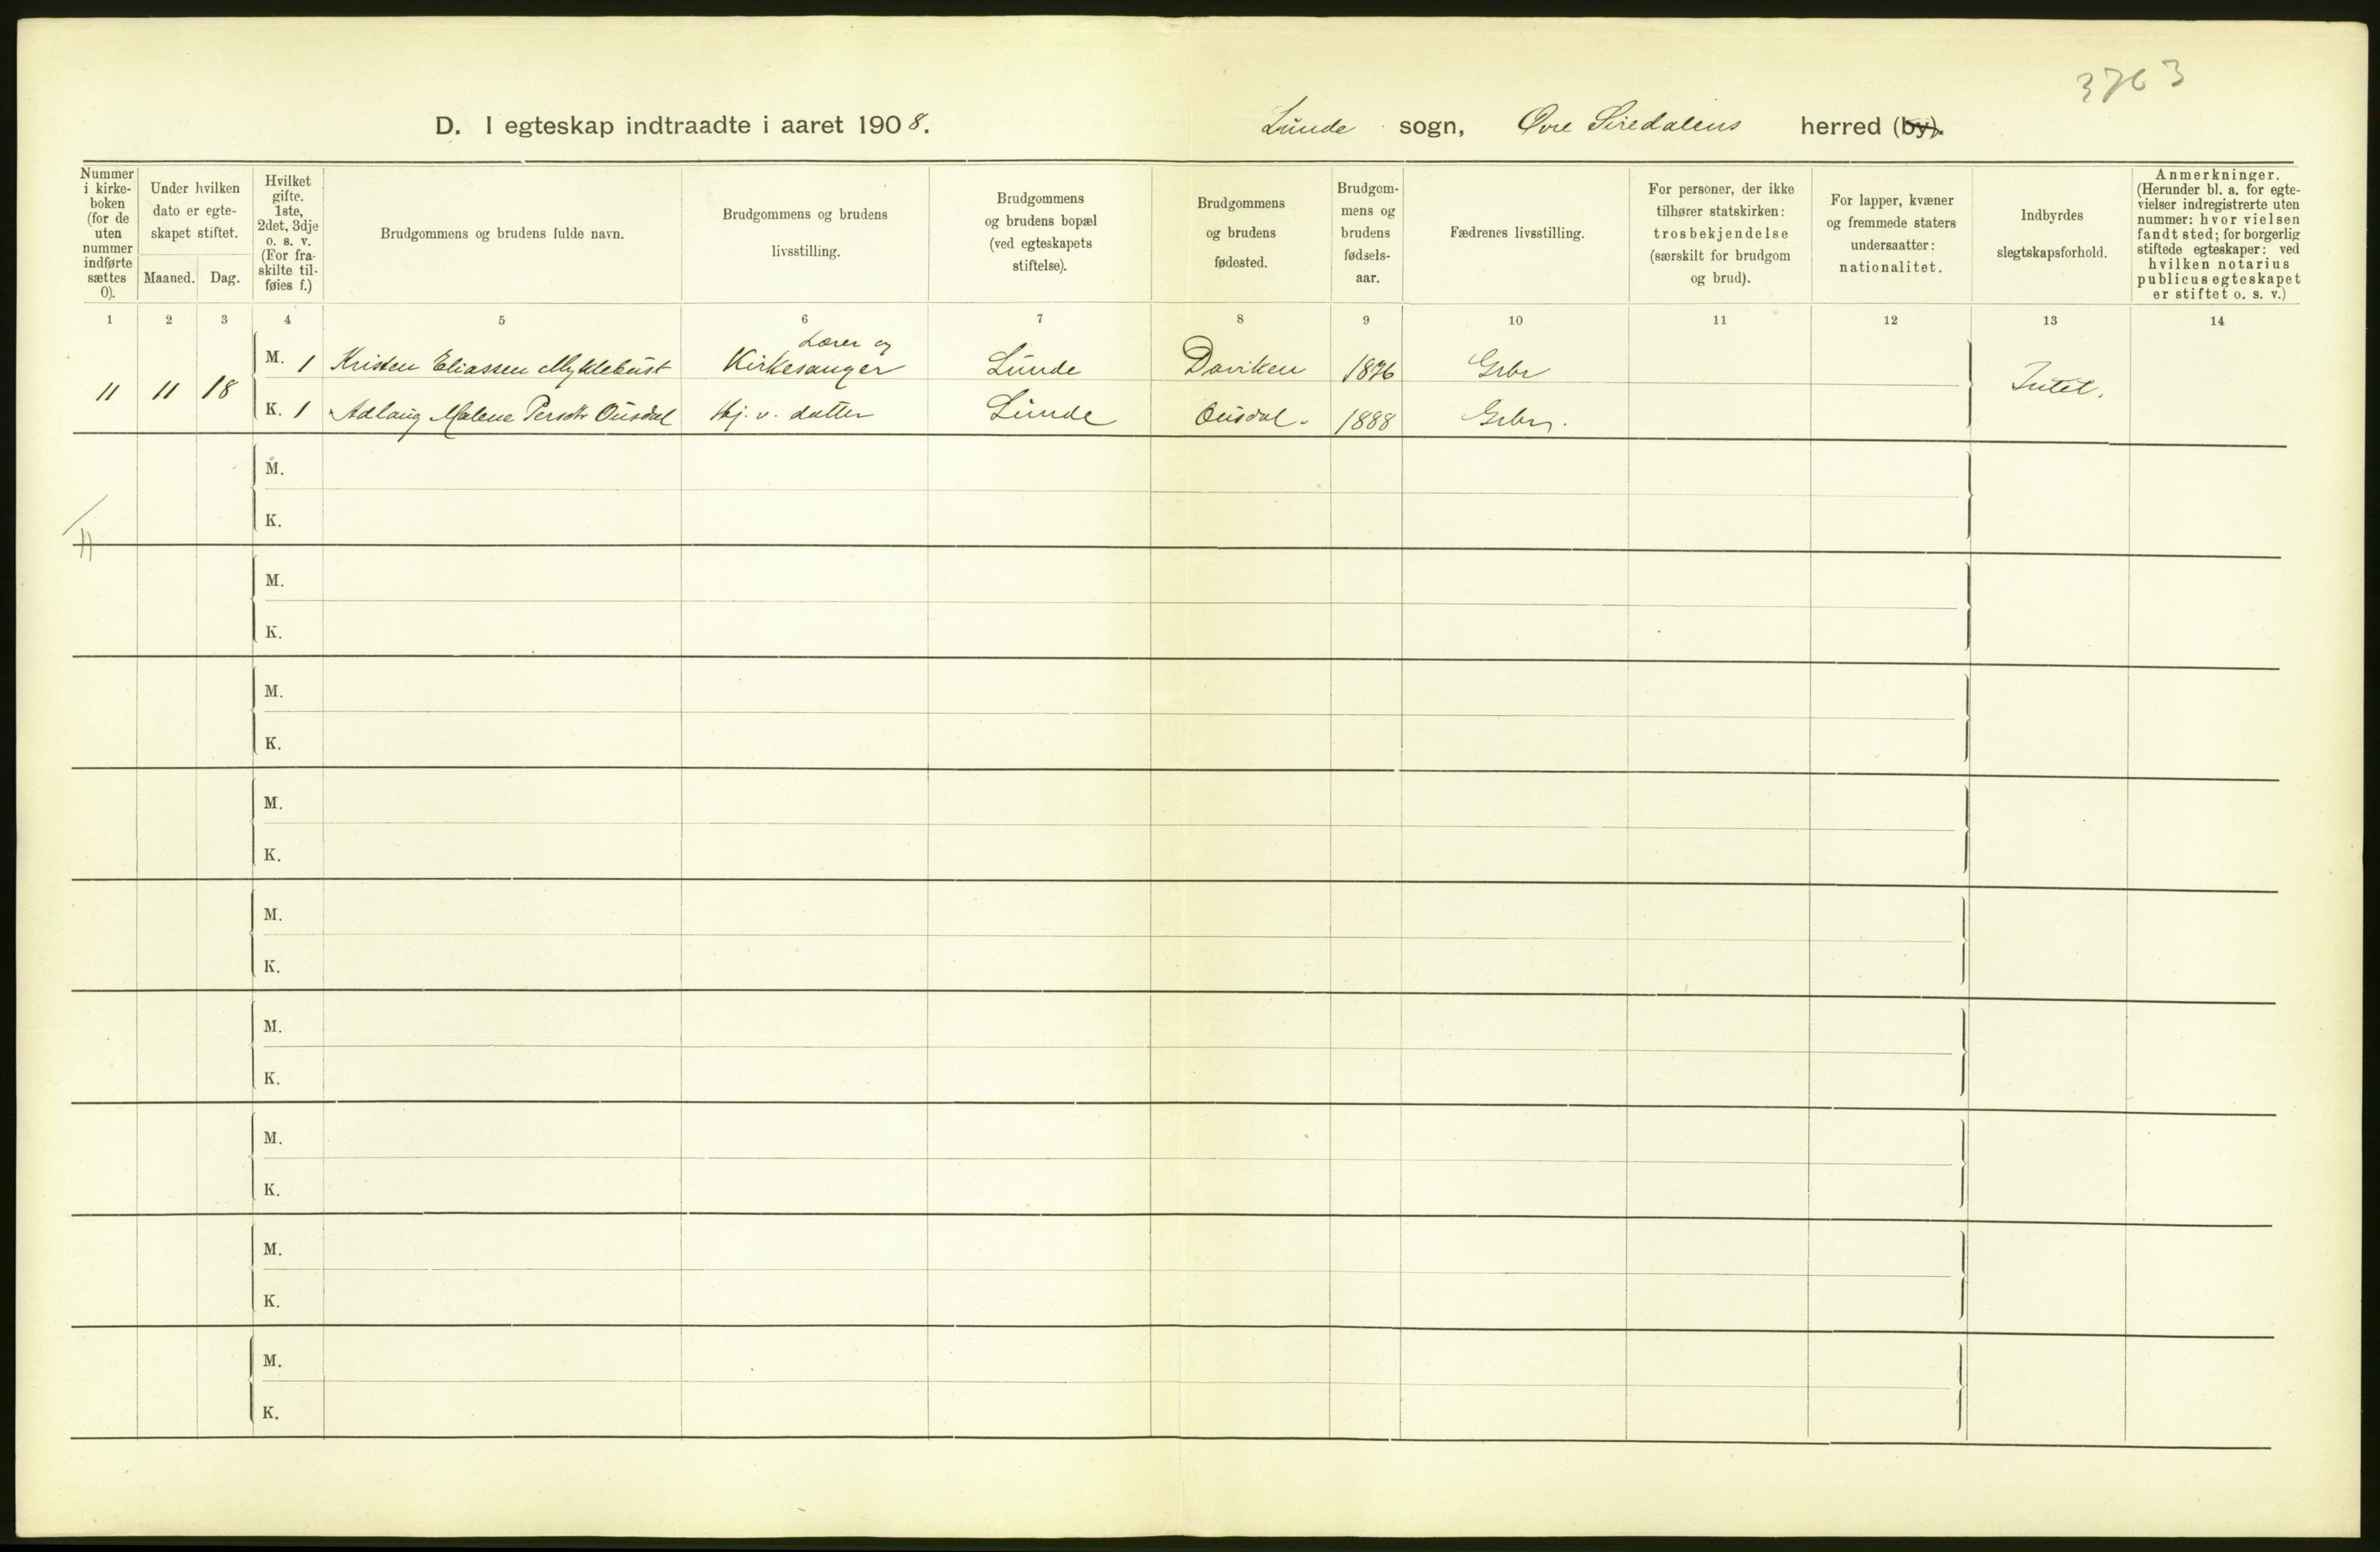 3763
D. I egteskap indtraadte i aaret 1908. Lunde sogn, Øvre Siredalens herred (by).
Nummer i kirke- boken (for de uten nummer indførte sættes 0).
Under hvilken dato er egte- skapet stiftet.
Maaned. Dag.
Hvilket gifte. 1ste, 2det, 3dje o. s. v. (For fra- skilte til- føies f.)
Brudgommens og brudens fulde navn.
Brudgommens og brudens livsstilling.
Brudgommens og brudens bopæl (ved egteskapets stiftelse).
Brudgommens og brudens fødested.
Brudgom- mens og brudens fødsels- aar.
Fædrenes livsstilling.
For personer, der ikke tilhører statskirken: trosbekjendelse (særskilt for brudgom og brud).
For lapper, kvæner og fremmede staters undersaatter: nationalitet.
Indbyrdes slegtskapsforhold.
Anmerkninger. (Herunder bl. a. for egte- vielser indregistrerte uten nummer: hvor vielsen fandt sted; for borgerlig stiftede egteskaper: ved hvilken notarius publicus egteskapet er stiftet o. s. v.)
1 2 3 4 5 6 7 8 9 10 11 12 13 14
Lærer og
11 11 18 M. 1 Kristen Eliassen Myklebust Kirkesanger Lunde Daviken 1876 Grbr Intet.
K. 1 Adlaug Malene Persdtr Ousdal Hj. v. datter Lunde Ousdal. 1888 Grbr.
M.
K.
11
M.
K.
M.
K.
M.
K.
M.
K.
M.
K.
M.
K.
M.
K.
M.
K.